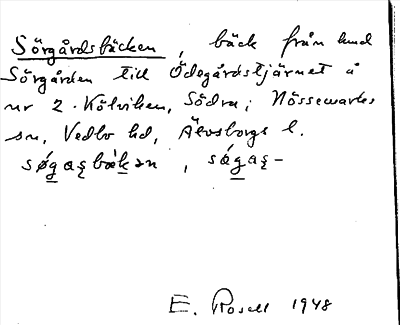 Sörgårdsbäcken, bäck från hmd
Sörgården till Ödegårdstjärnet å
nr 2 Kölviken, Södra; Nössemarks
sn, Vedbo hd, Älvsborgs l.
E. Rosell 1948